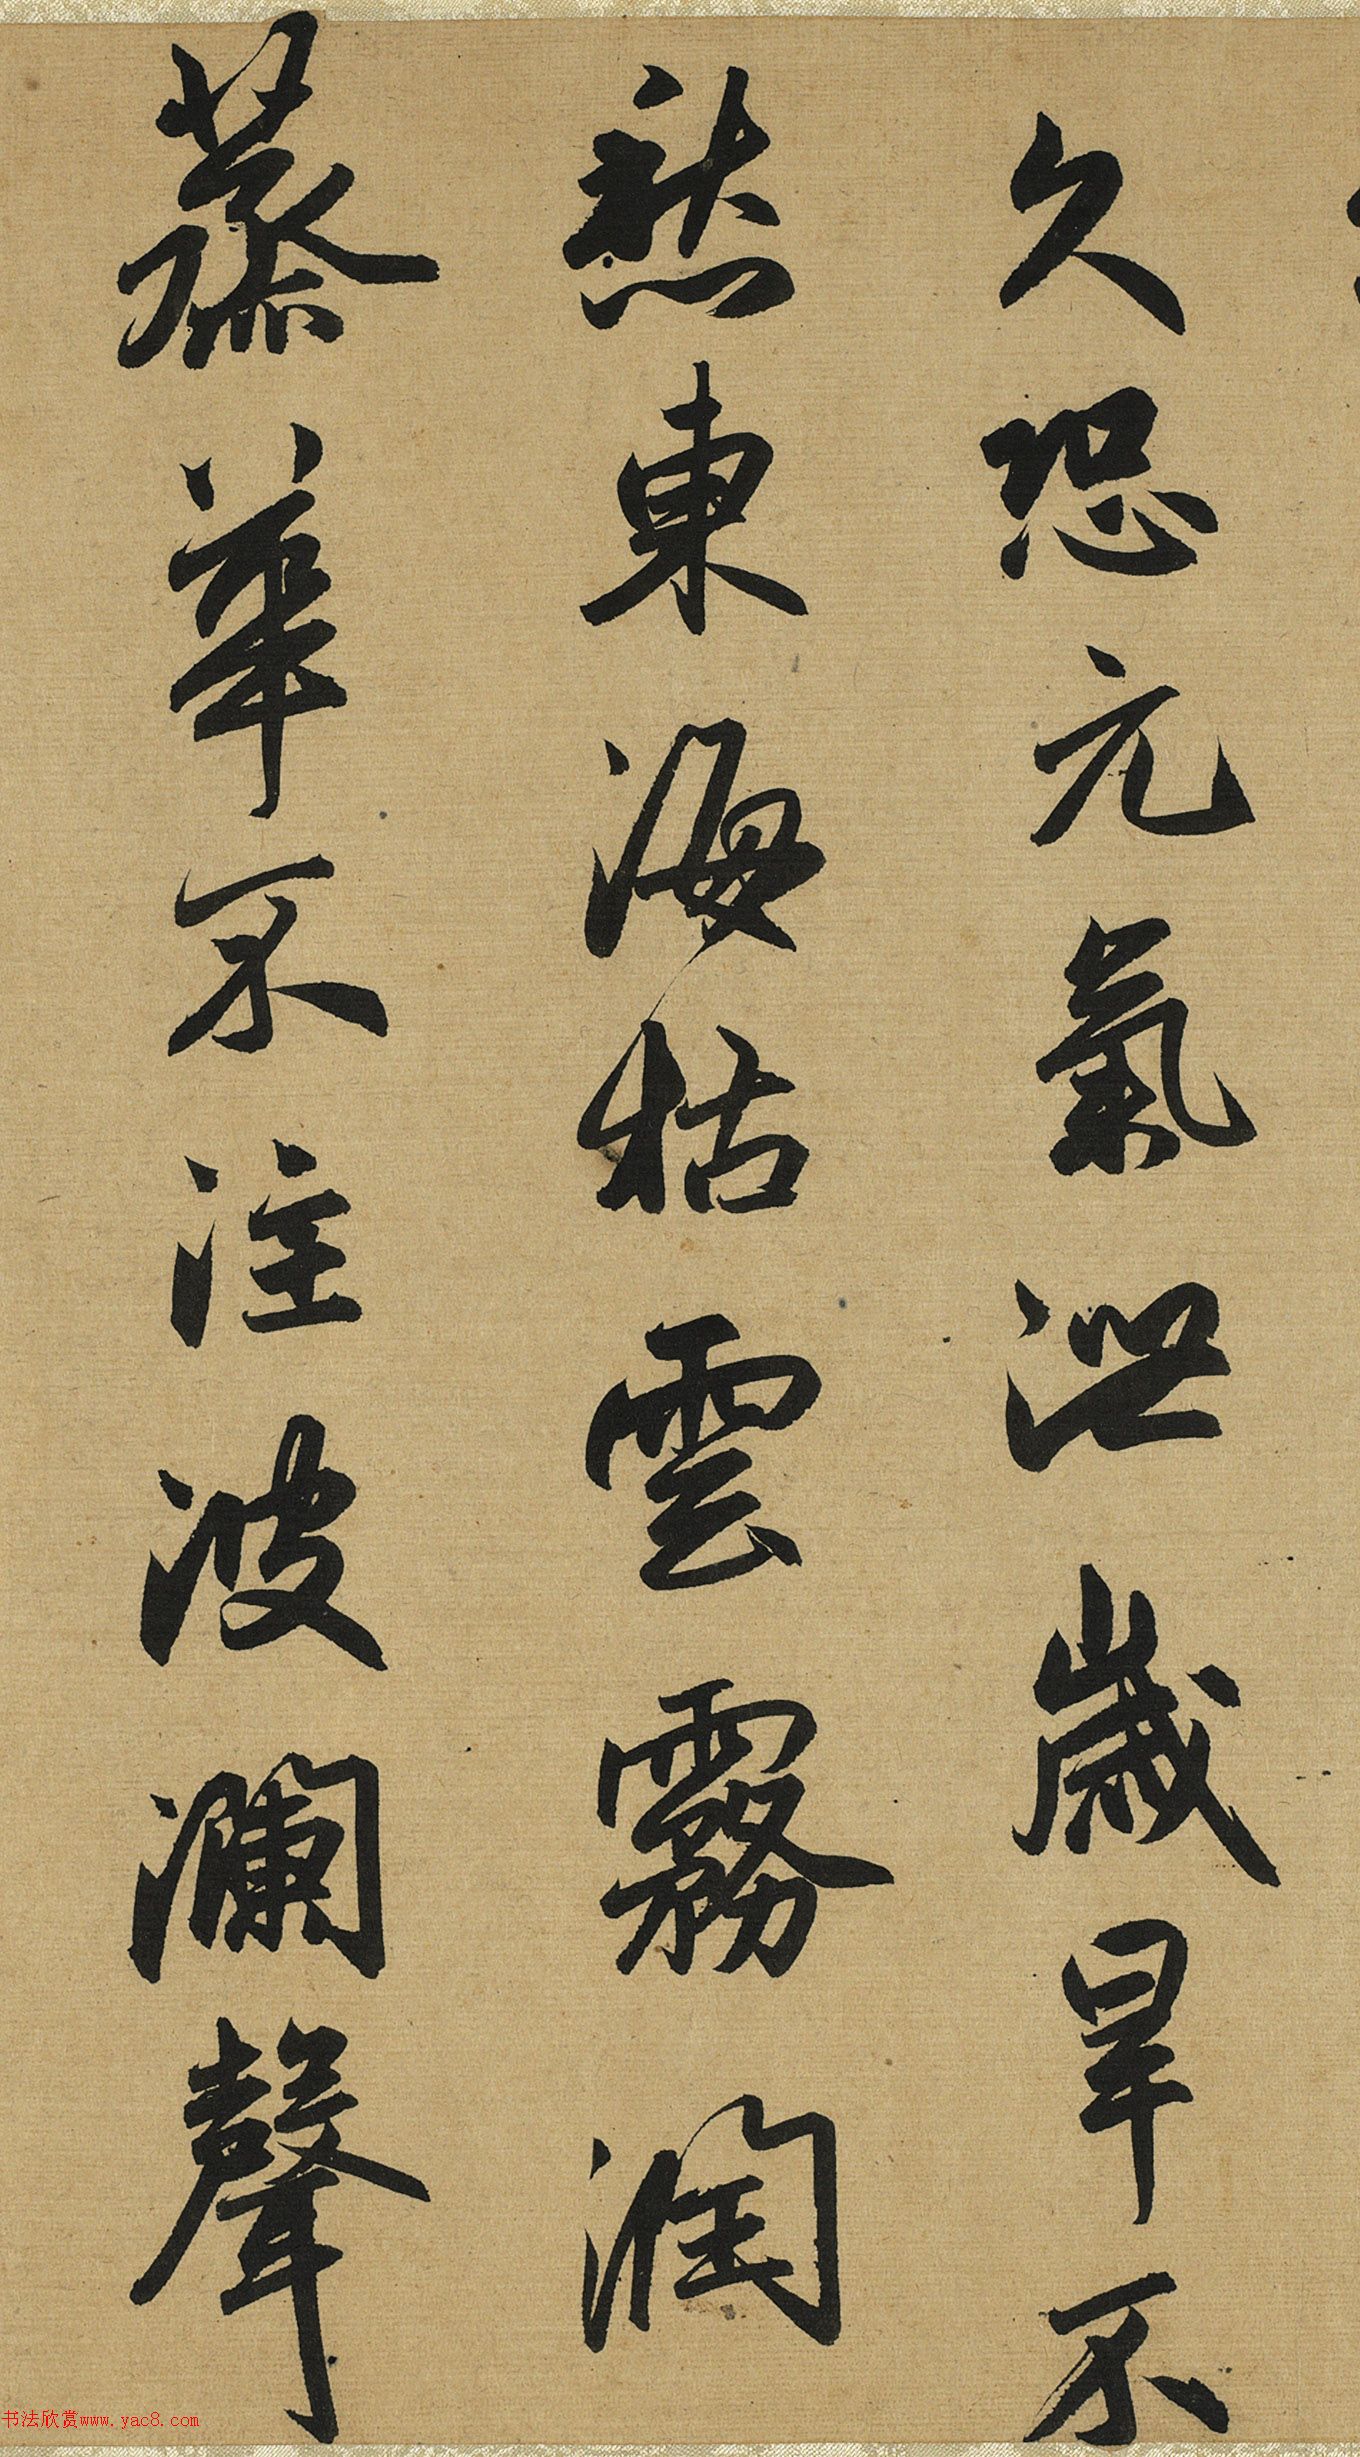 久恐元氣泄歲旱不
愁東海枯雲霧潤
蒸華不注波瀾聲
书法欣赏www.yac8.com